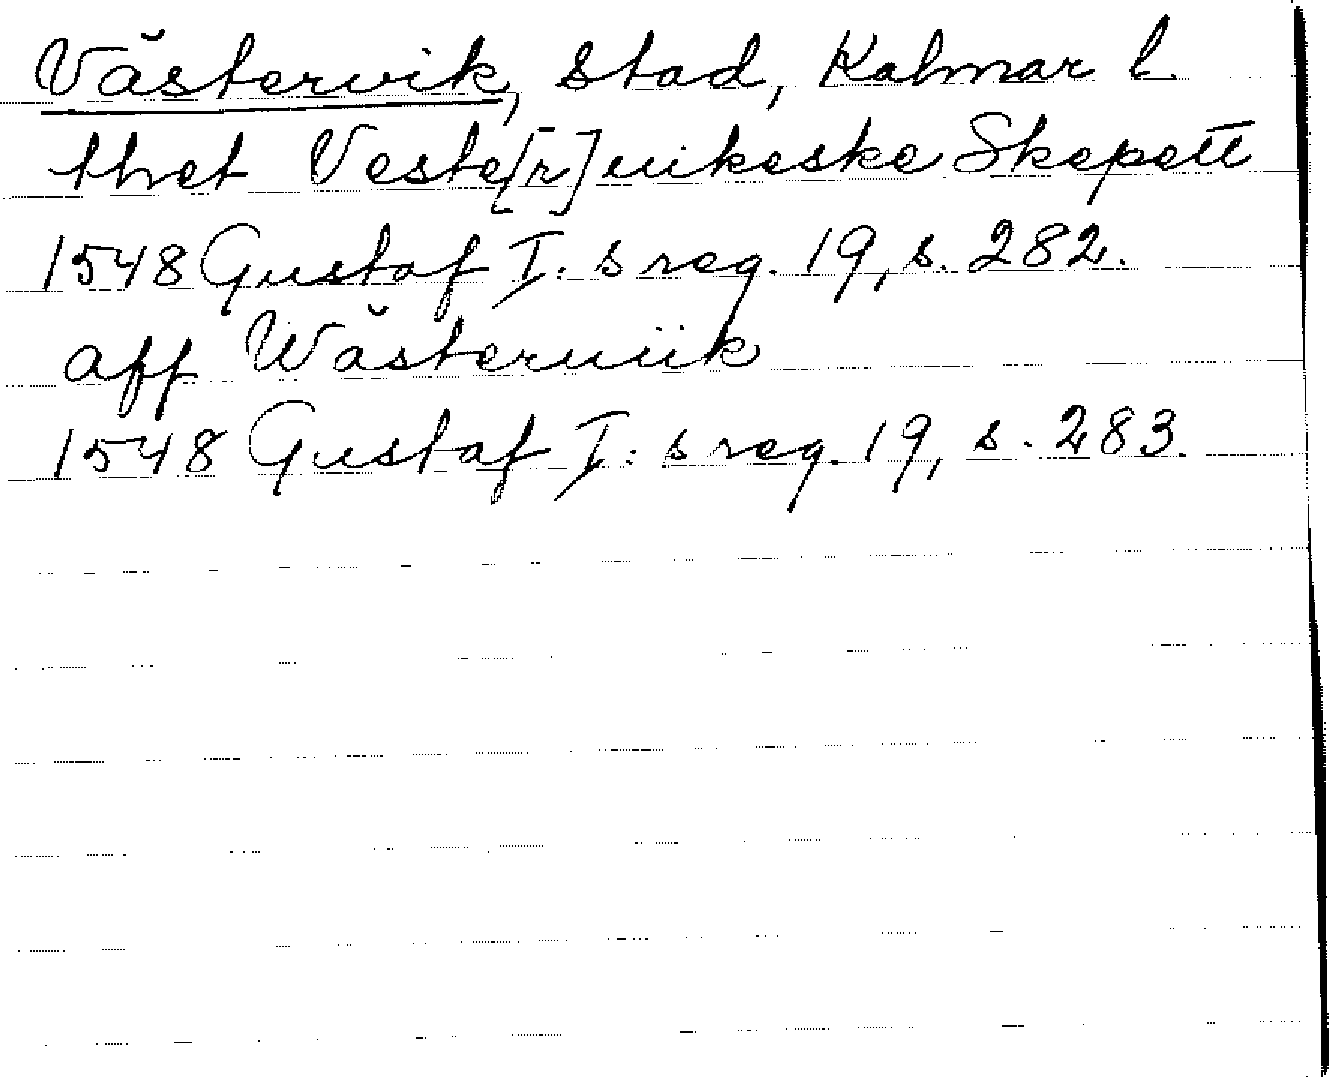 Västervik, stad, Kalmar l.
thet Veste[r]uikeske Skepett
1548 Gustaf I. s reg. 19, s. 282.
aff Wästeruiik
1548 Gustaf I: s reg. 19, s. 283.